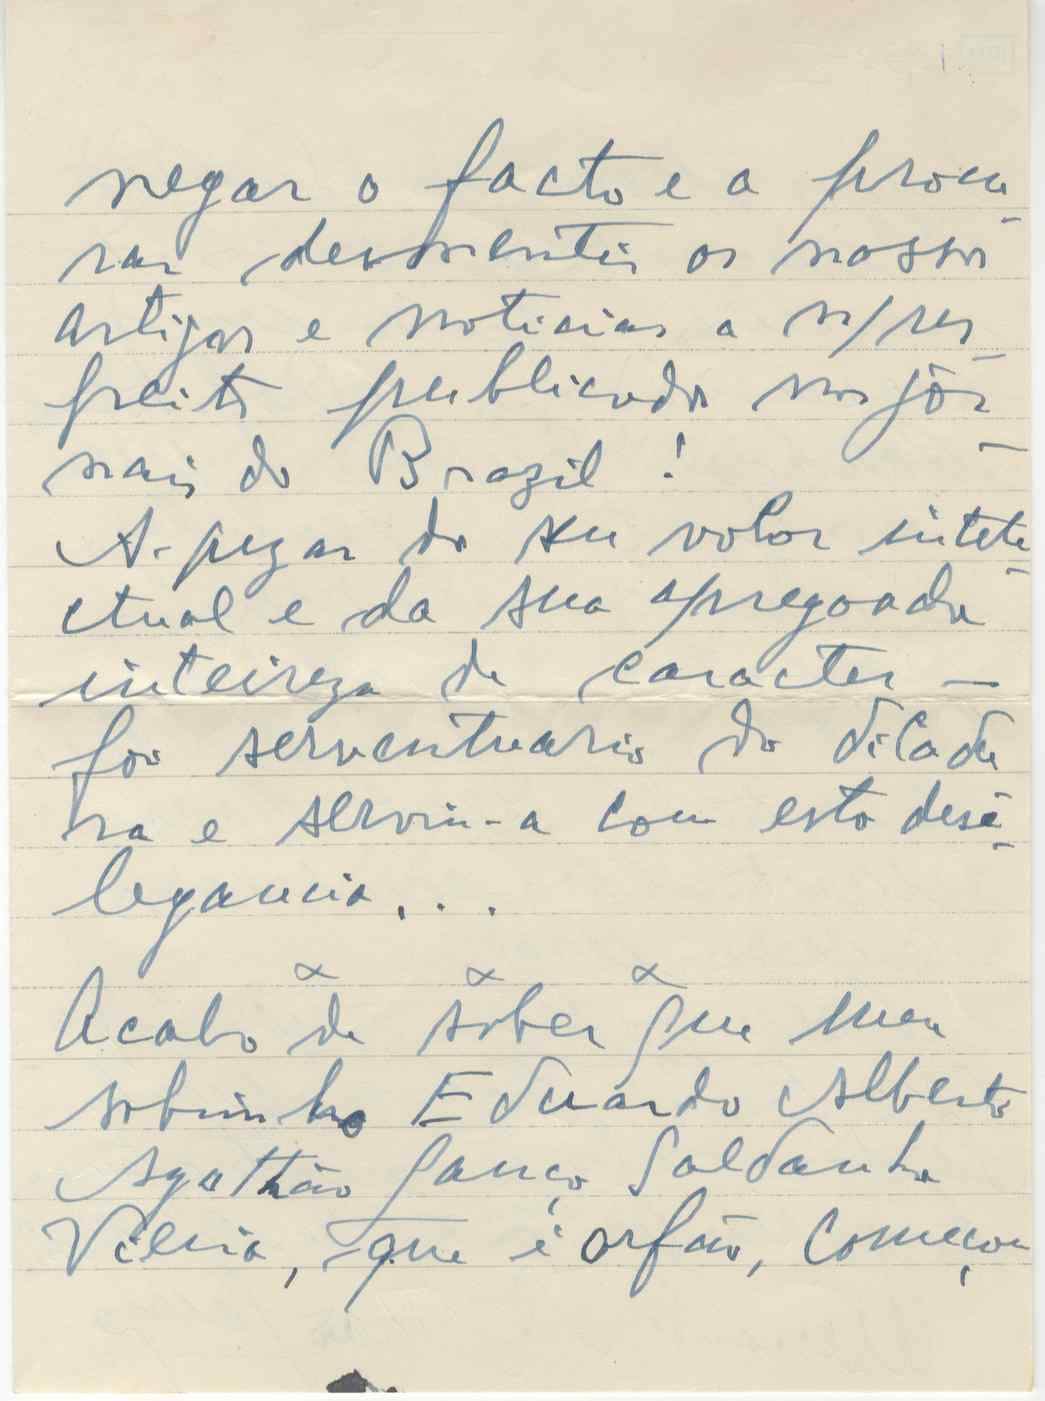 negar o facto e a procu-
rar desmentir os nossos
artigos e noticias a n/res-
peito publicados nos jor-
nais do Brazil !
A-pezar do seu valor intele-
ctual e da sua apregoada
inteireza de caracter —
foi serventuario da ditadu
ra e serviu-a com esta dese-
legancia...
x x x
Acabo de saber que meu
sobrinho Eduardo Alberto
Agathão Lanço Saldanha
Vieira, que é orfão, começou